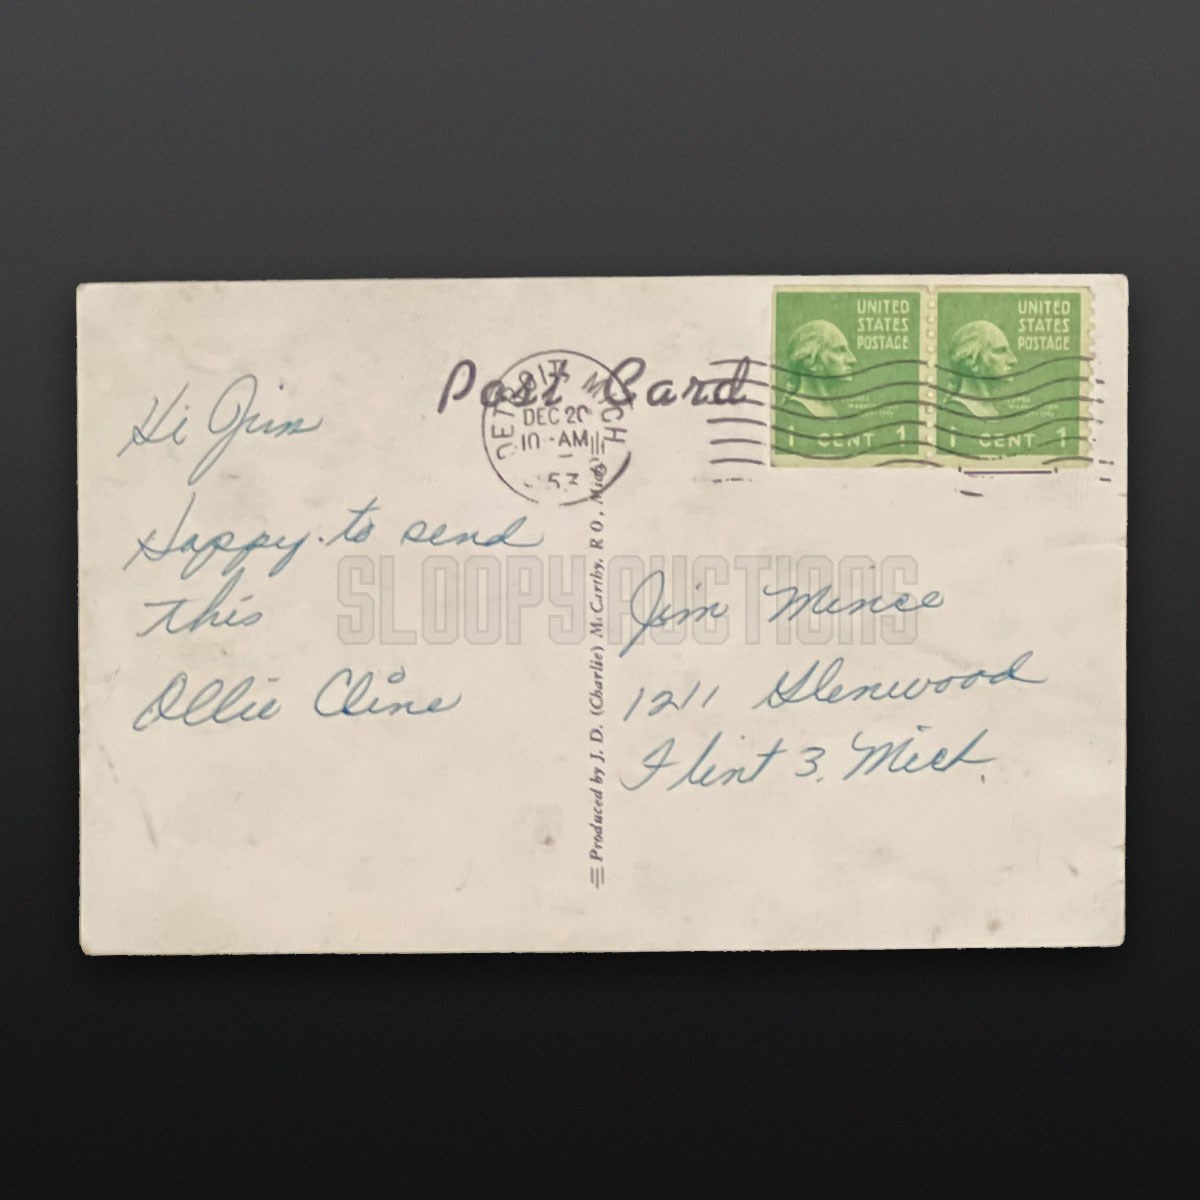 Post Card
DETROIT MICH
DEC 20
10-AM
53
UNITED
STATES
POSTAGE
1 CENT 1
UNITED
STATES
POSTAGE
1 CENT 1
Hi Jim
Happy to send
this
Ollie Cline
Produced by J. D. (Charlie) McCarthy, R O, Mich
Jim Mince
1211 Glenwood
Flint 3. Mich
SLOOPY AUCTIONS